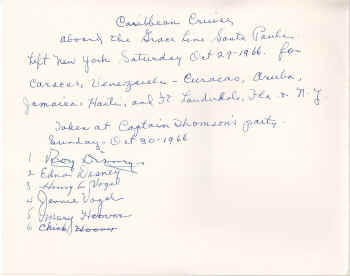 Caribbean Cruise
aboard the Grace Line Santa Paula
Left New York Saturday Oct 29-1966. for
Caracas, Venezuela - Curacao, Aruba,
Jamaica Haiti, and Ft Lauderdale, Fla & N.Y
Taken at Captain Thomson's party.
Sunday - Oct 30-1966
1 Roy Disney
2 Edna Disney
3 Henry L Vogel
4 Jennie Vogel
5 Mary Hoover
6 Chick Hoover